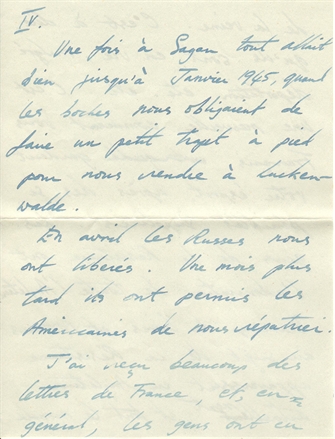 IV.
Une fois à Sagan tout allait
bien jusqu'à Janvier 1945, quand
les boches nous obligaient de
faire un petit trajet à pied
pour nous rendre à Lucken-
walde.
En avril les Russes nous
ont libérés. Une mois plus
tard ils ont permis les
Américaines de nous répatrier.
J'ai reçu beaucoup des
lettres de France, et, en
général, les gens ont eu